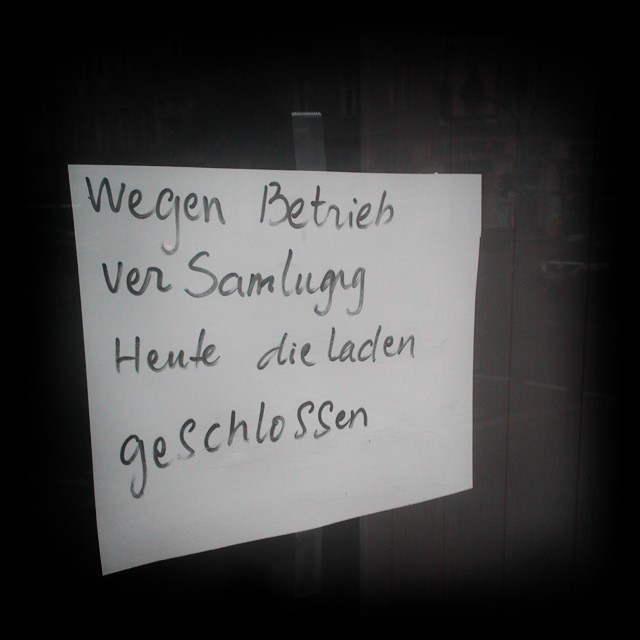 Wegen Betrieb
ver Samlugng
Heute die laden
geschlossen